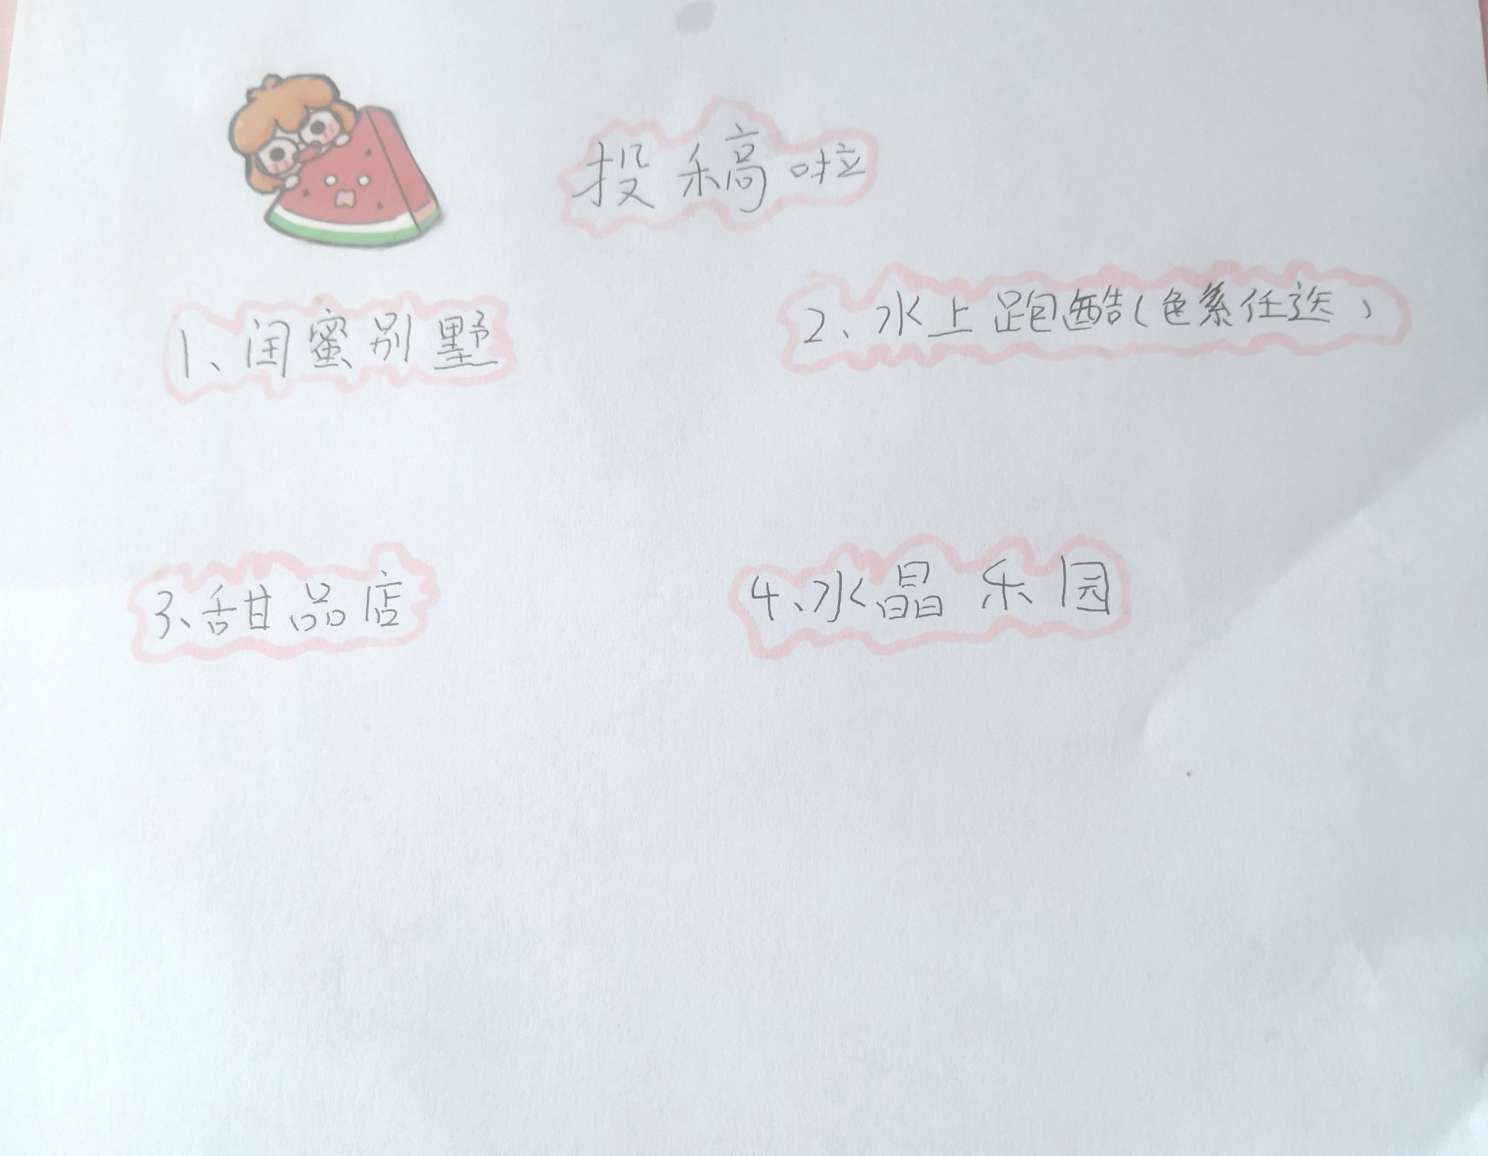 投稿啦
1、闺蜜别墅
2、水上跑酷(色系任选)
3、甜品店
4、水晶乐园